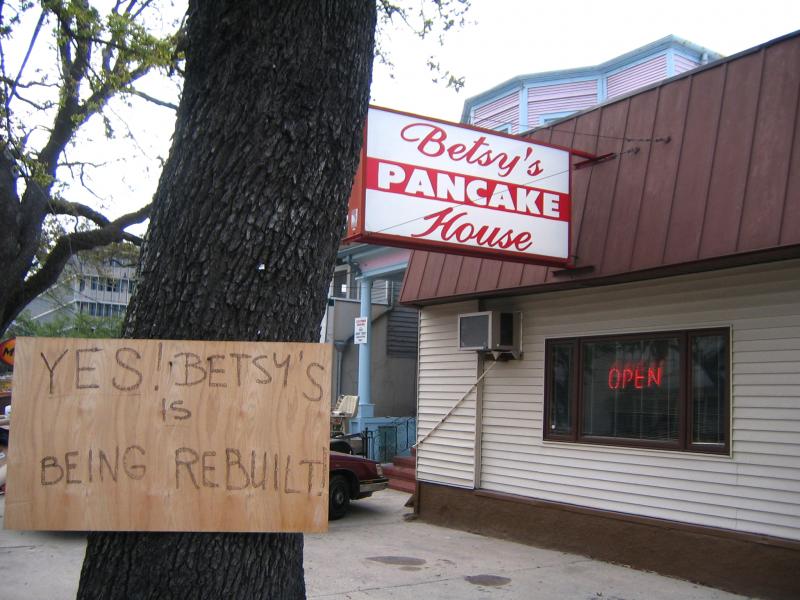 Betsy's
PANCAKE
House
YES! BETSY'S
IS
BEING REBUILT!
OPEN